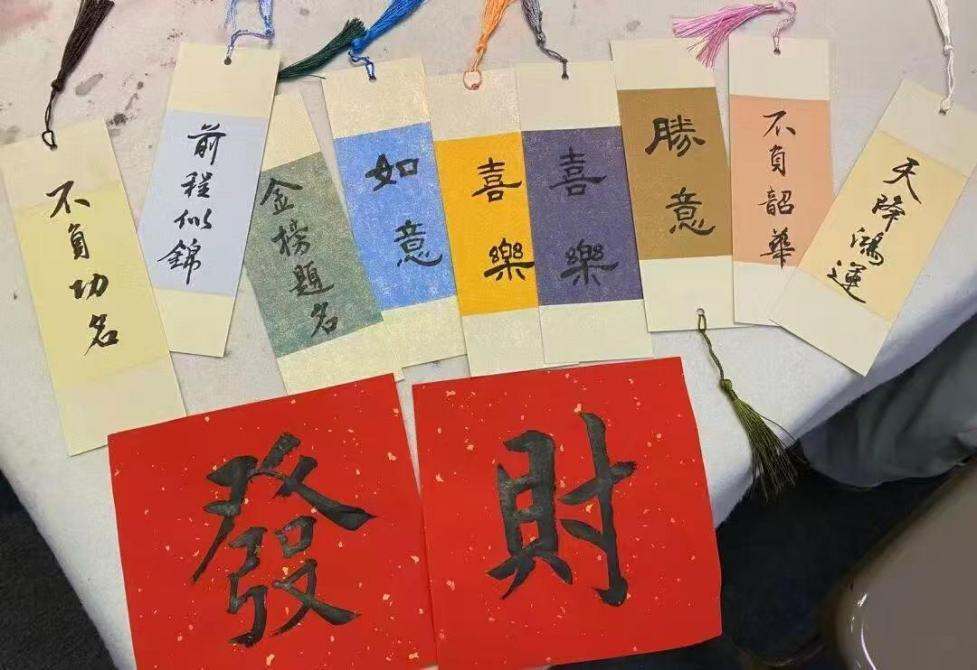 不負功名
前程似錦
金榜題名
如意
喜樂
喜樂
勝意
不負韶華
天降鴻運
發
財